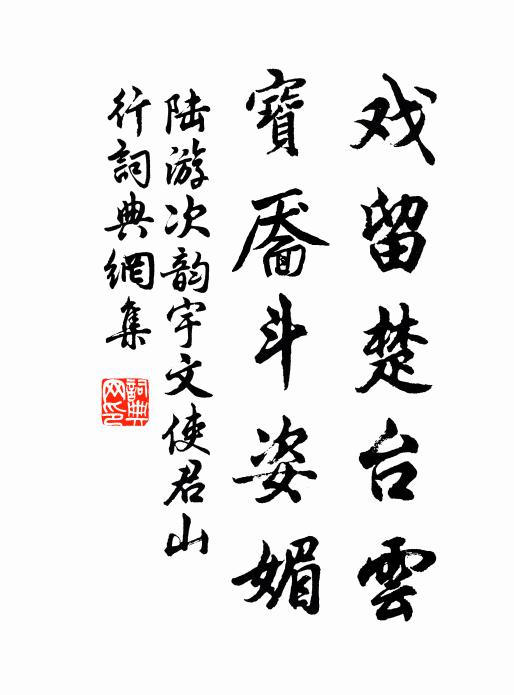 戏留楚台雲
寶靥斗姿媚
陆游次韵宇文使君山
行詞典網集
詞典网印